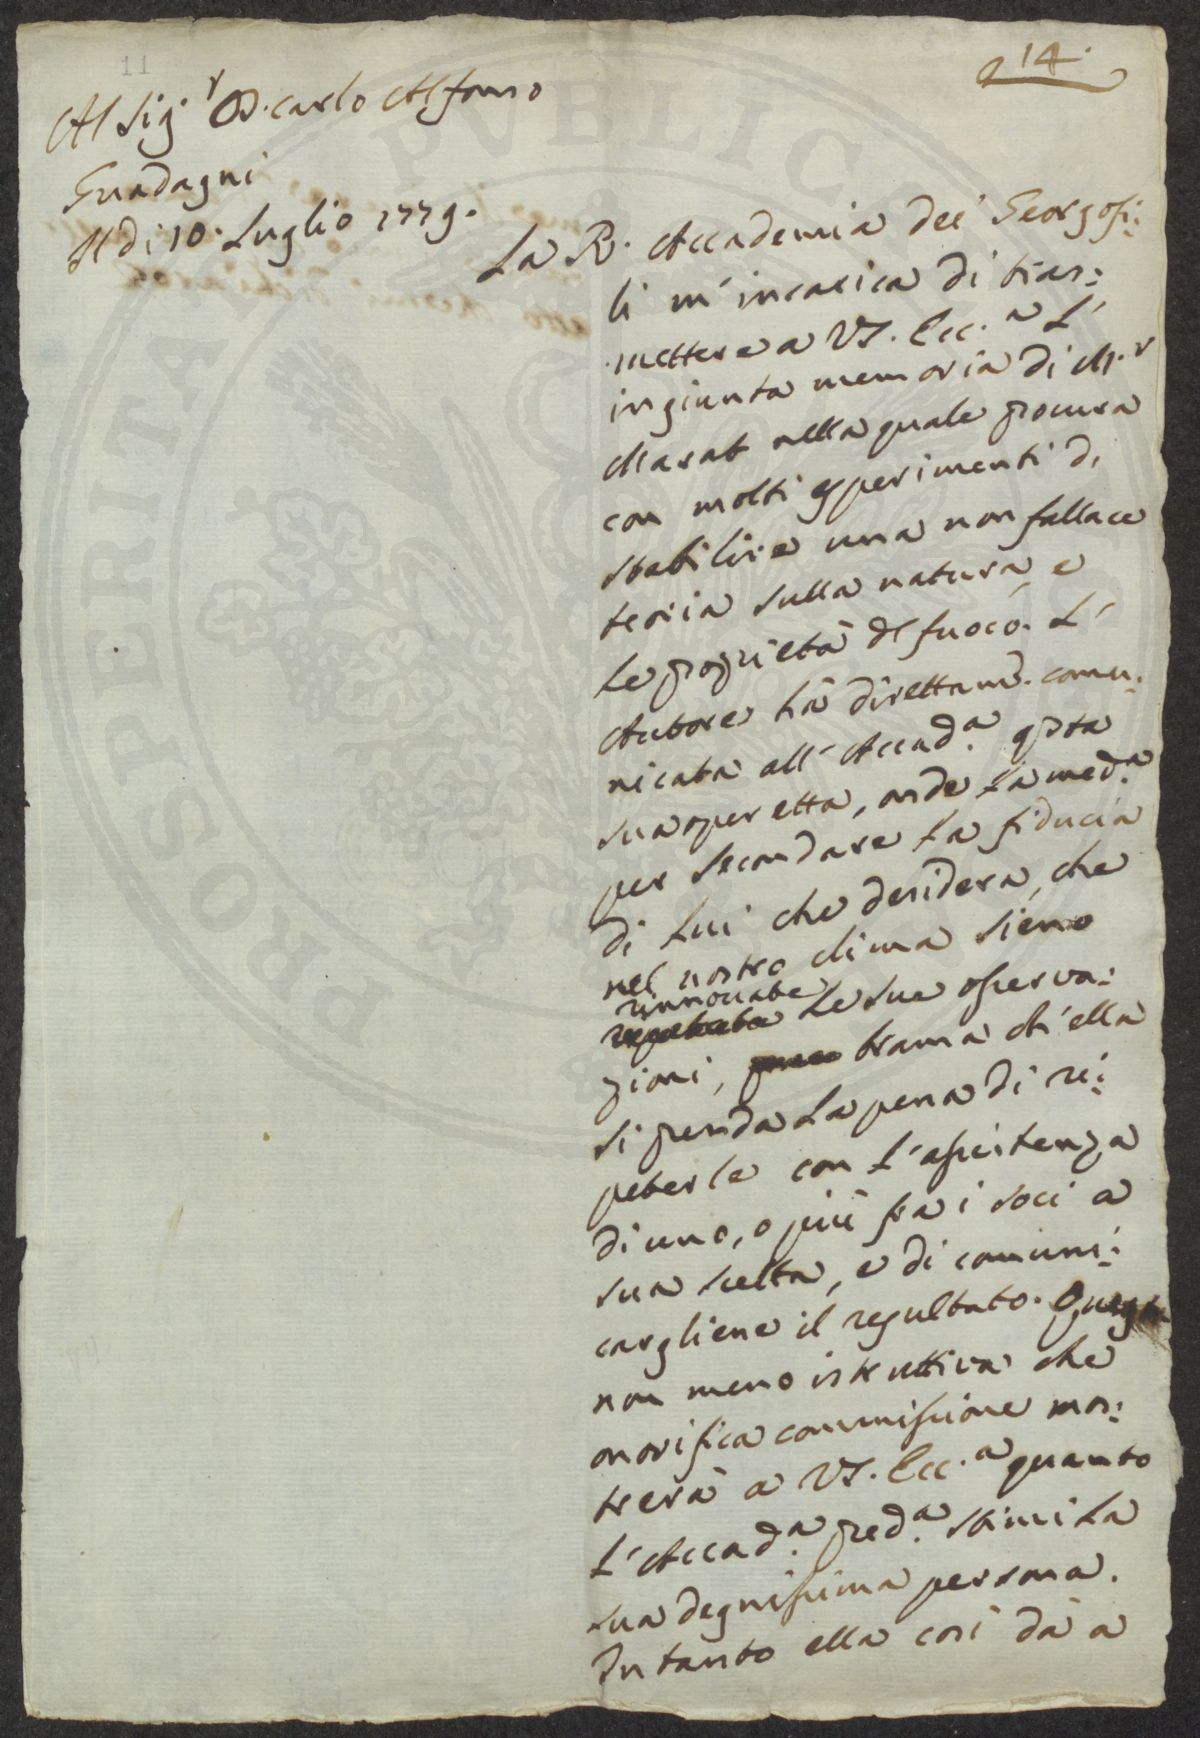 11
14.
Al Sig.r D. Carlo Alfonso
Guadagni
Il dì 10. Luglio 1779.
La R. Accademia dei Georgofi:
li m'incarica di tras:
mettere a VS. Ecc.a l'
ingiunta memoria di M.r
Marat nella quale procura
con molti esperimenti di
stabilire una non fallace
teoria sulla natura, e
le proprietà del fuoco. L'
Autore hà direttam. comu:
nicata all'Accad.a qsta
sua operetta, onde la med.a
per secondare la fiducia
di lui che desidera, che
nel nostro clima sieno
rinnovate
le sue osserva:
zioni, brama ch'ella
si prenda la pena di re:
peterle con l'assistenza
di uno, o più fra i soci a
sua scelta, e di comuni:
cargliene il resultato. Questa
non meno istruttiva che
onorifica commissione mos:
trerà a VS. Ecc.a quanto
l'Accad.a pred.a stimi la
sua degnissima persona.
Intanto ella così dà a
PVBLICA
PROSPERITA